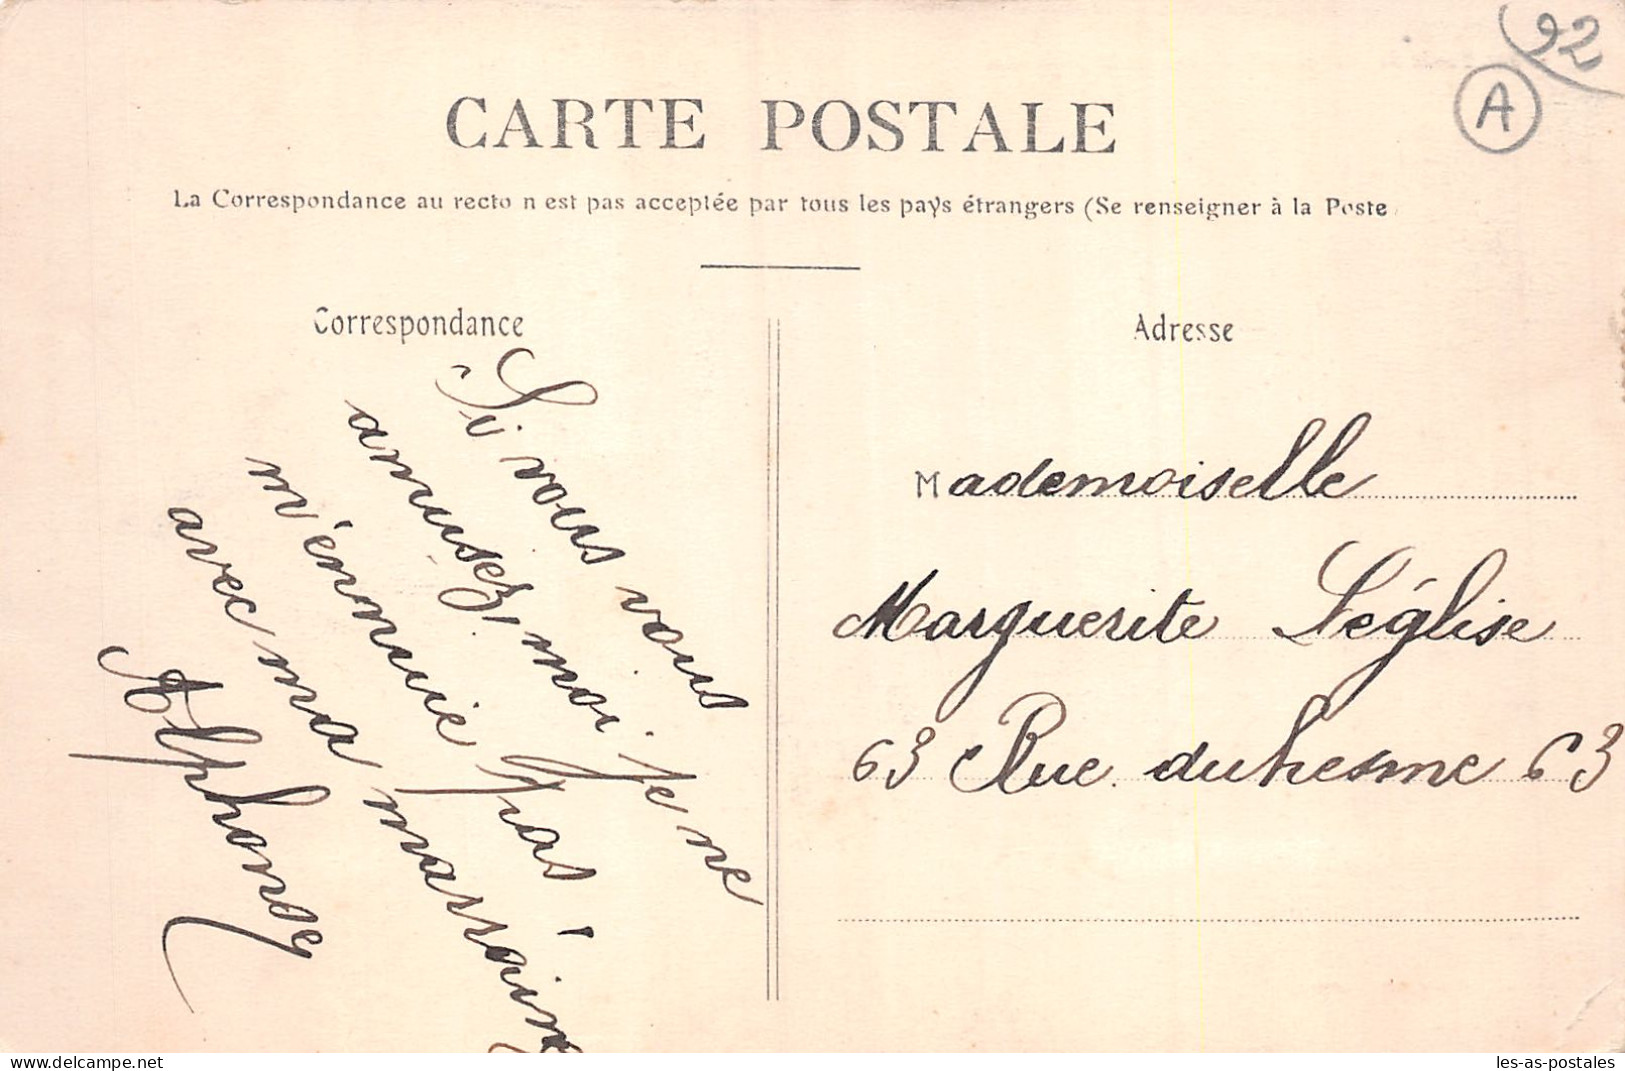 92
A
CARTE POSTALE
La Correspondance au recto n est pas acceptée par tous les pays étrangers (Se renseigner à la Poste
Correspondance
Si vous vous
amusez, moi je ne
m'ennuie pas!
avec ma marraine
Alphonse
Adresse
Mademoiselle
Marguerite Léglise
63 Rue duhesme 63
les-as-postales
www.delcampe.net